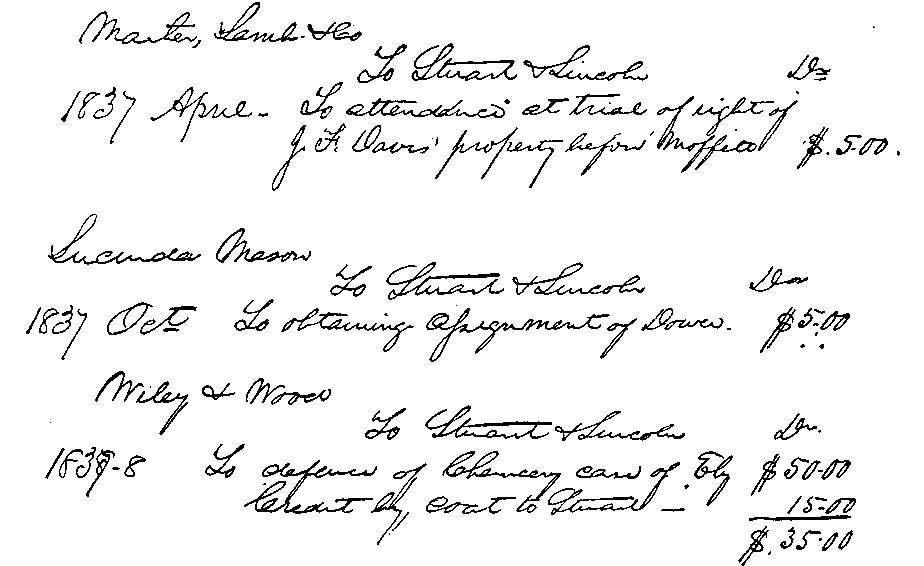 Marter, Lamb & Co
To Stuart & Lincoln Dr
1837 April - To attendance at trial of right of
J. F. Davis' property before Moffett $5.00.
Lucinda Mason
To Stuart & Lincoln Dr
1837 Oct To obtaining assignment of Dower. $5.00
Wiley & Wood
To Stuart & Lincoln Dr.
1837-8 To defence of Chancery case of Ely $50.00
Credit by coat to Stuart — 15.00
$.35.00